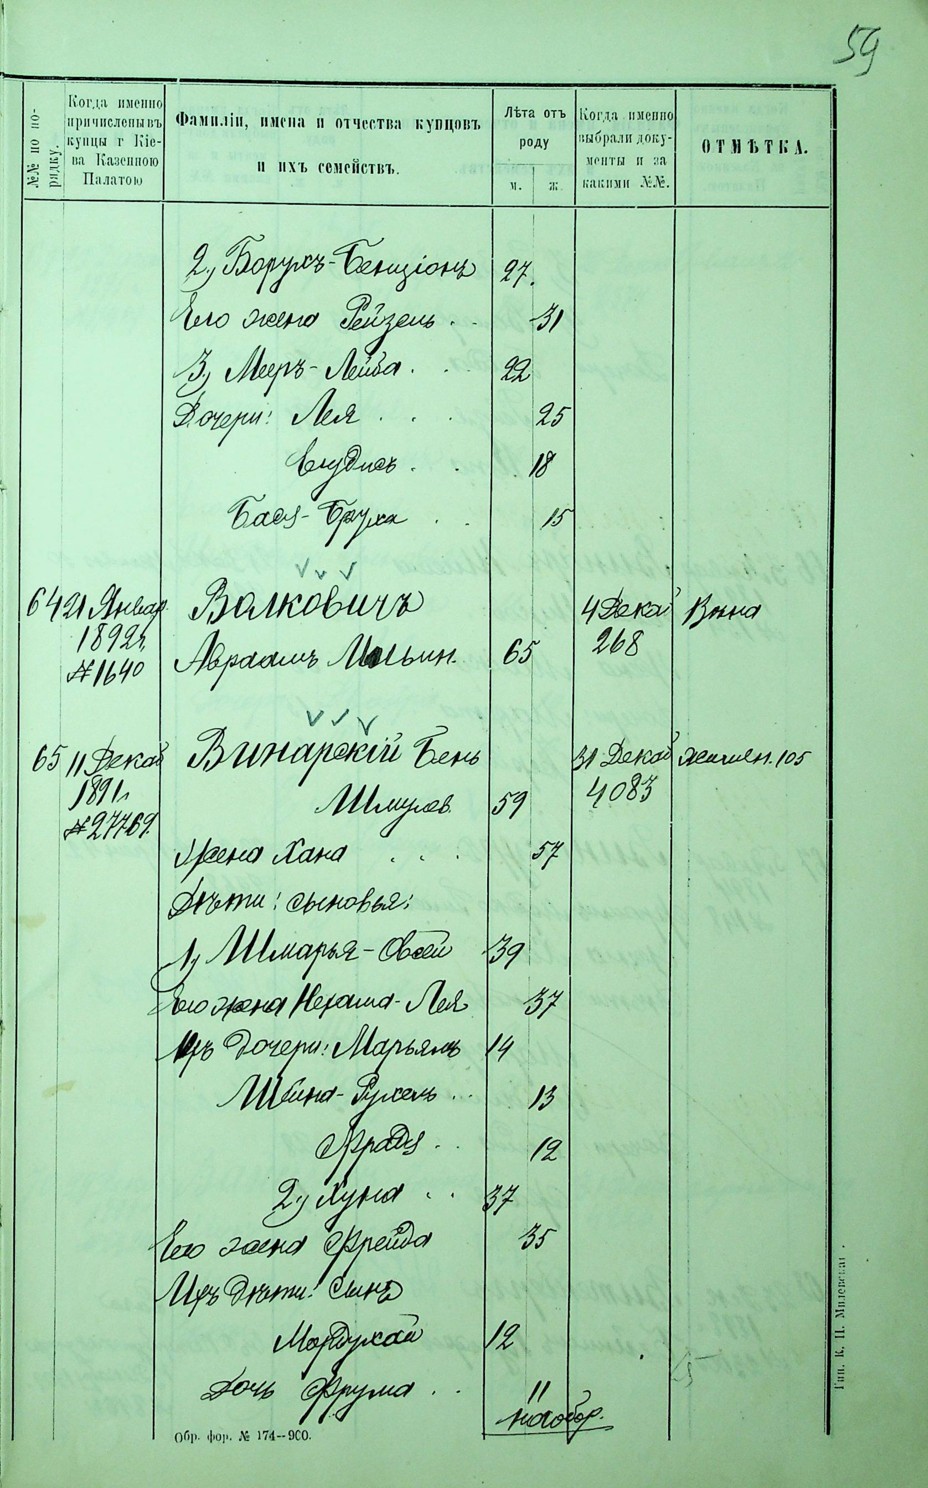 59
№№ по по-
рядку.
Когда именно
причислены въ
купцы г Кіе-
ва Казенною
Палатою
Фамиліи, имена и отчества купцовъ
и ихъ семействъ.
Лѣта отъ
роду
м. ж.
Когда именно
выбрали доку-
менты и за
какими №№.
ОТМѢТКА.
2) Борухъ-Бенціонъ 27.
Его жена Рейзель . . 31
3) Мееръ-Лейба . . 22
Дочери: Лея . . . 25
Ендись . . 18
Бася-Бруха . . 15
64 21 Январ Волковичъ 4 Декаб
1892 г. 268
№ 1640 Авраамъ 65
65 11 Декаб Винарскій Бень 31 Декаб 105
1891 г. Шмулев. 59 4083
№ 27769.
Жена Хана . . . 57
Дѣти: сыновья:
1) Шмарья-Овсей 39
Его жена Нехама-Лея 37
Ихъ дочери: Марьямъ 14
Рухель . . 13
Фрада . . 12
2) Хуна . . 37
Его жена Фрейда 35
Ихъ дѣти: Сынъ
Мордухай 12
Дочь Фрума . . 11
на обор.
Обр. фор. № 174—900.
Тип. К. Н. Милевскаг .